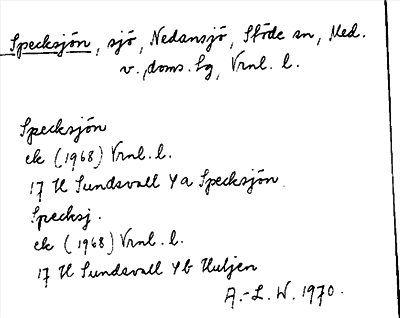 Specksjön, sjö, Nedansjö, Stöde sn, Med.
v., doms. lg, Vrnl. l.
Specksjön
ek (1968) Vrnl. l.
17 H Sundsvall 4 a Specksjön
Specksj.
ek (1968) Vrnl. l.
17 H Sundsvall 4 b Huljen
A.-L. W. 1970.